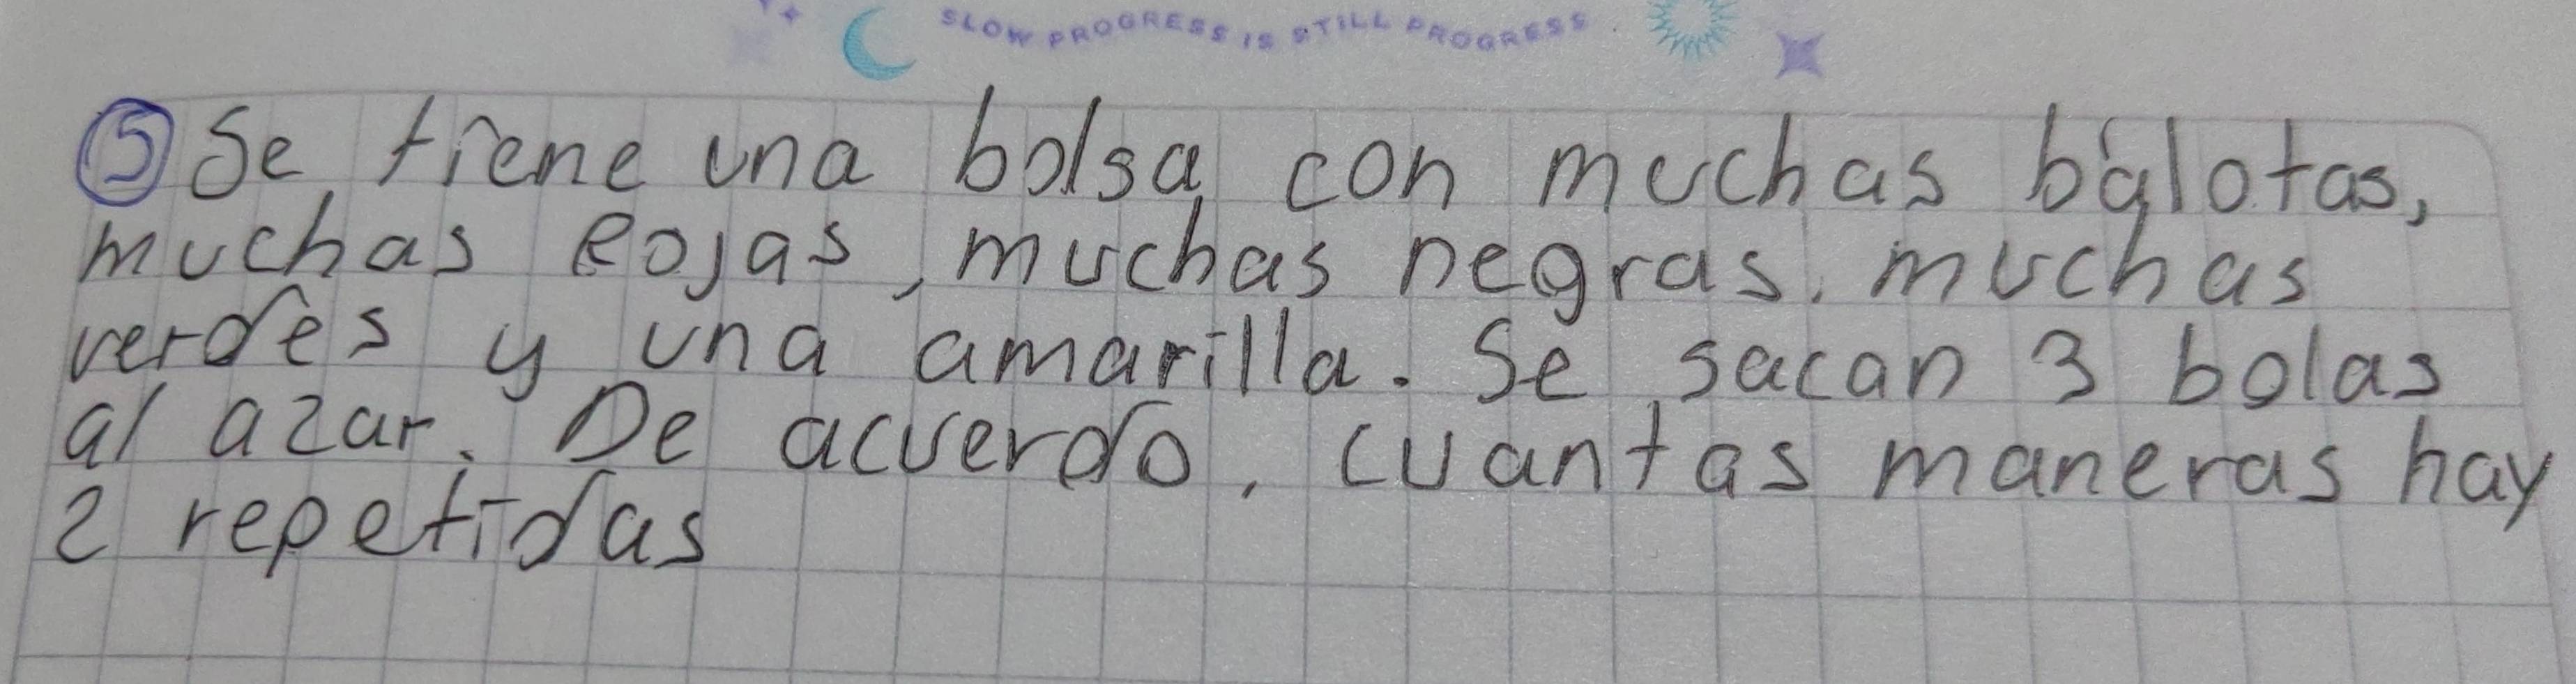 SLOW PROGRESS IS STILL PROGRESS
5 Se tiene una bolsa con muchas balotas,
muchas Rojas, muchas negras, muchas
verdes y una amarilla. Se sacan 3 bolas
al azar. De acuerdo, cuantas maneras hay
2 repetidas